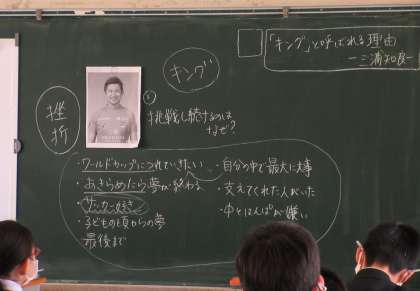 「キング」と呼ばれる理由
―三浦知良―
キング
挫折
挑戦し続けるのは
なぜ?
・ワールドカップにつれていきたい
・あきらめたら夢が終わる
・サッカー好き
・子どもの頃からの夢
最後まで
・自分の中で最大に大事
・支えてくれた人がいた
・中とはんぱが嫌い